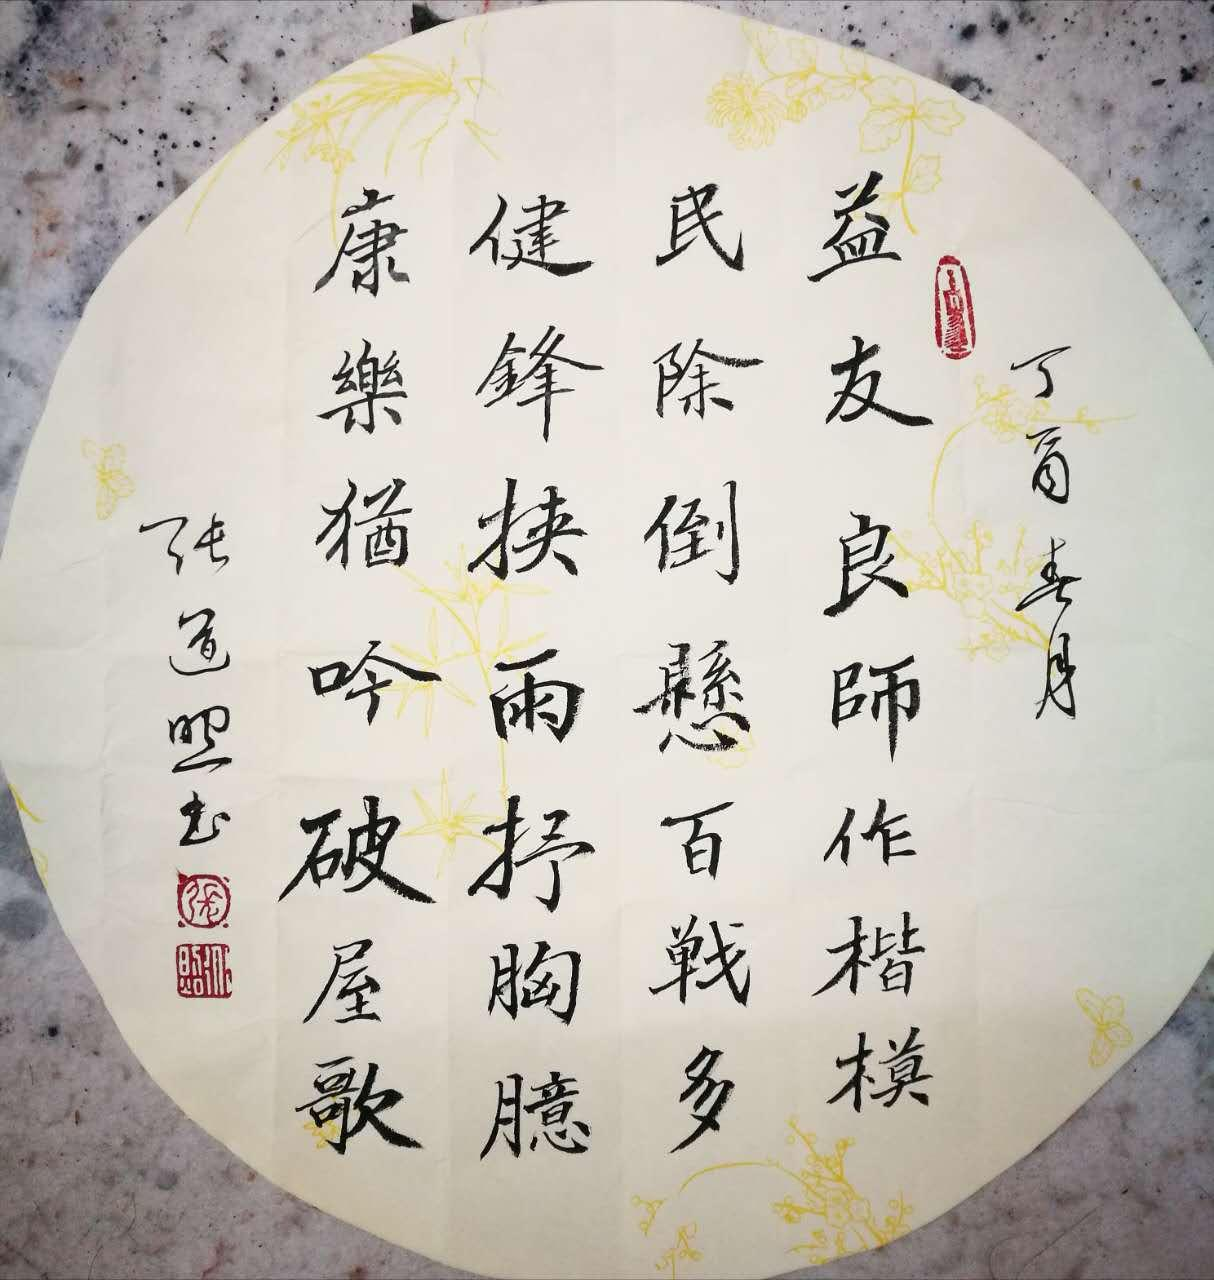 丁酉春月
益友良師作楷模
民除倒懸百戦多
健鋒挟雨抒胸臆
康樂猶吟破屋歌
张道照书